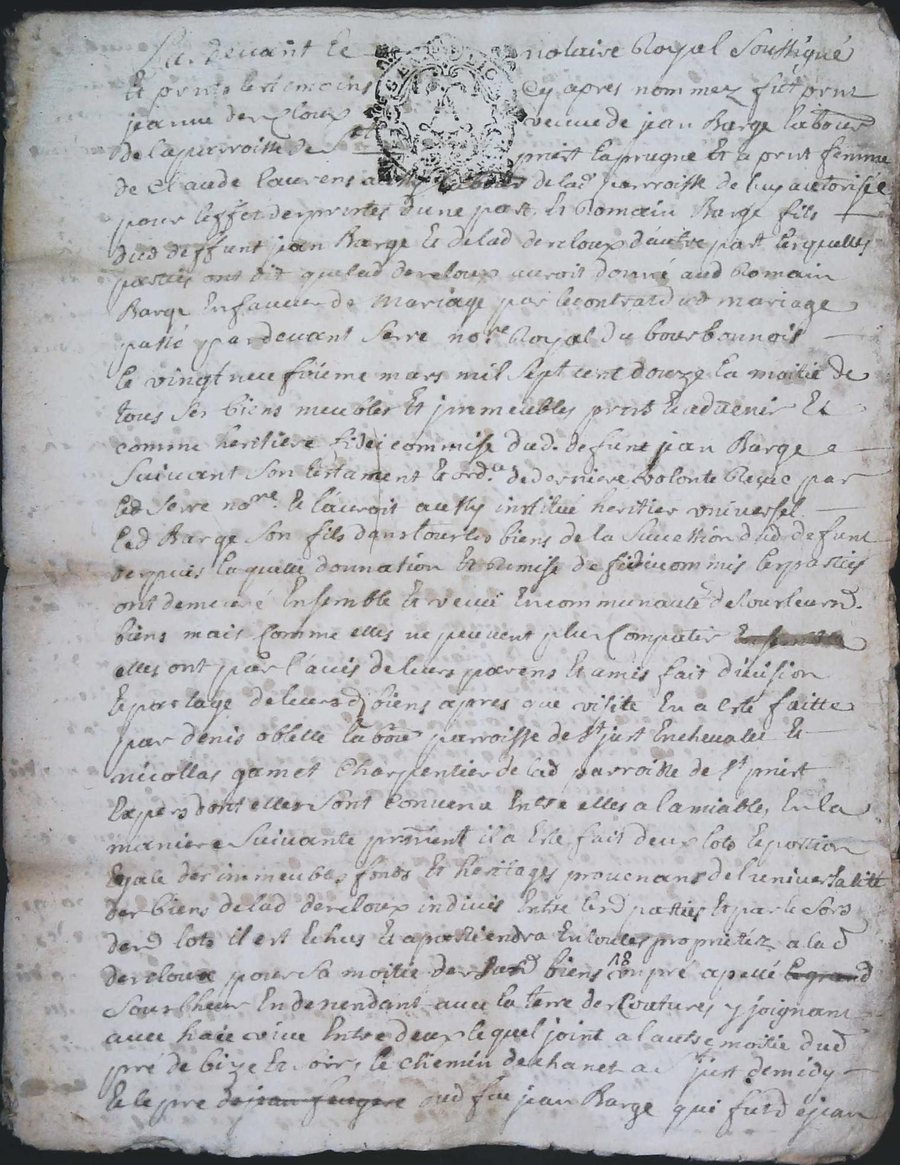 Par devant le notaire Royal soussigné
Et prnts les temoins cy apres nommez fut prnt
jeanne descloux veuve de jean Barge labour
de la parroisse de St priest laprugne Et a prnt femme
de Claude laurens aussy de lad parroisse de luy authorisée
pour leffet des prntes d'une part, Et Romain Barge fils
dud deffunt jean Barge Et de lad descloux d'autre part lesquelles
parties ont dit que lad descloux auroit donné aud Romain
Barge En faveur de mariage par le contrat dud mariage
passé par devant Serre nore Royal du bourbonnois
le vingt neufvieme mars mil sept cent douze la moitié de
tous ses biens meubles Et jmmeubles prnts Et advenir Et
comme heritiere fidei commise dud. defunt jean Barge
suivant son testament Et ord. de derniere volonté Reçue par
led Serre nore. Et l'auroit aussy institué heritier universel
led Barge son fils dans tous les biens de la succession dud defunt
depuis laquelle donnation Et Remise de fideicommis les parties
ont demeuré Ensemble Et vecu En communauté de tous leursd.
biens mais comme elles ne peuvent plus compatir
elles ont par l'avis de leurs parens Et amis fait division
Et partage de leursd biens apres que visite En a Esté faitte
par denis obelle labour parroisse de St just Enchevalet Et
nicollas gamet Charpentier de lad parroisse de St priest
Expers dont elles sont convenu Entre elles a lamiable, En la
maniere suivante premt il a Esté fait deux lots Et portion
Egale des immeubles fonds Et heritages provenans de l'universalité
des biens de lad descloux indivis Entre lesd parties Et par le sord
desd lots il est Echus Et apartiendra En toutes proprietez a lad
descloux pour sa moitié des susd biens 18 un pré apellé le grand
sourbheur En dependant avec la terre des Coutures y joignant
avec haie vive Entre deux lequel joint a lautre moitié dud
pré de bize Et soirs le chemin de chanet a St just de midy
Et le pré de jean fougere aud feu jean Barge qui fut de jean